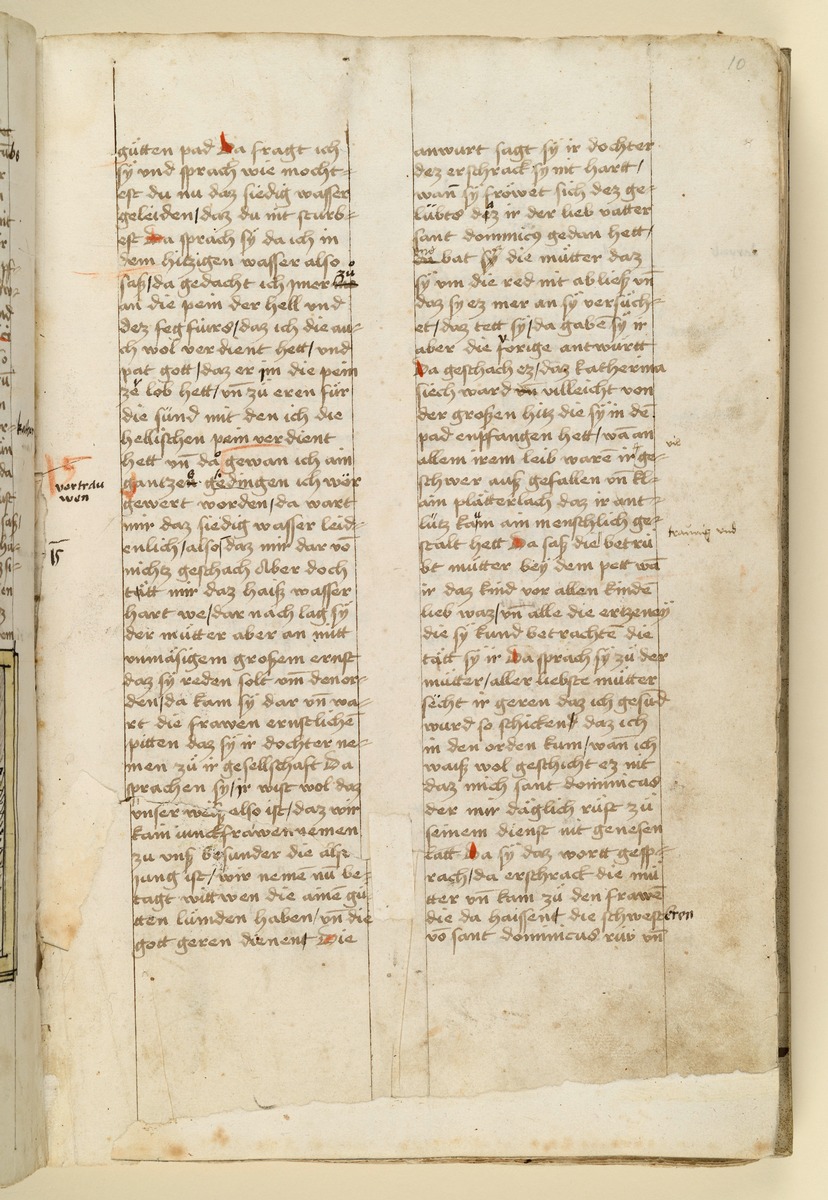 10
gütten pad Da fragt ich
sÿ vnd sprach wie mocht⸗
est du nu daz siedig wasser
geleiden / daz du nit sturb⸗
est Da sprach sÿ da ich in
dem hitzigen wasser also
saß / da gedacht ich jmer zů
an die pein der hell vnd
dez fegfürs / daz ich die au⸗
ch wol verdient hett / vnd
pat gott / daz er jm die pein
ze lob hett / vn̄ zů eren für
die sünd mit den ich die
hellischen pein verdient
hett vn̄ da gewan ich ain
gantzen gedingen ich wör
gewert worden / da wart
mir daz siedig wasser leid⸗
enlich / also daz mir dar vō
nichtz geschach Aber doch
tätt mir daz haiß wasser
hart we / dar nach lag sÿ
der můtter aber an mitt
vnmäsigem großem ernst
daz sÿ reden solt vm̄ den or⸗
den / da kam sÿ dar vn̄ wa⸗
rt die frawen ernstlichē
pitten daz sÿ ir dochter ne⸗
men zů ir gesellschaft Da
sprachen sÿ / ir wist wol daz
vnser weiß also ist / daz wir
kain junckfrawen nemen
zu vnß besunder die alß
jung ist / wir nemē nu̇ be⸗
tagt wittwen die ainē gů⸗
tten lümden haben / vn̄ die
gott geren dienent Die
vertrau
wen
15
anwurt sagt sÿ ir dochter
dez erschrack sÿ nit hartt /
wan̄ sÿ fröwet sich dez ge⸗
lübtß daz ir der lieb vatter
sant dominicꝰ gedan hett /
vnd bat sÿ die můtter daz
sÿ vm die red nit ab ließ vn̄
daz sÿ ez mer an sÿ versüch⸗
et / daz tett sÿ / da gabē sÿ ir
aber die vorige antwürtt
Da geschach ez / daz katherina
siech ward villeicht von
der großen hitz die sÿ in dē
pad enpfangen hett / wā an
allem irem leib warē ir ge⸗
schwer auß gefallen vn̄ kl⸗
ain plätterlach daz ir ant⸗
lütz kam̄ ain menschlich ge⸗
stalt hett Da saß die betrü
bt můtter beÿ dem pett wā
ir daz kind vor allen kindē
lieb waz / vn̄ alle die ertzeneÿ
die sÿ kund betrachtē die
tätt sÿ ir Da sprach sÿ zů der
můtter / aller liebste můtter
sëcht ir geren daz ich gesūd
wurd so schickent daz ich
in den orden kum / wan ich
waiß wol geschicht ez nit
daz mich sant dominicus
der mir däglich rüft zů
seinem dienst nit genesen
latt Da sÿ daz wortt gesp⸗
rach / da erschrack die mů
tter vn̄ kam zů den frawē
die da haissent die schwestren
vō sant dominicus rüw vn̄
traurig vnd